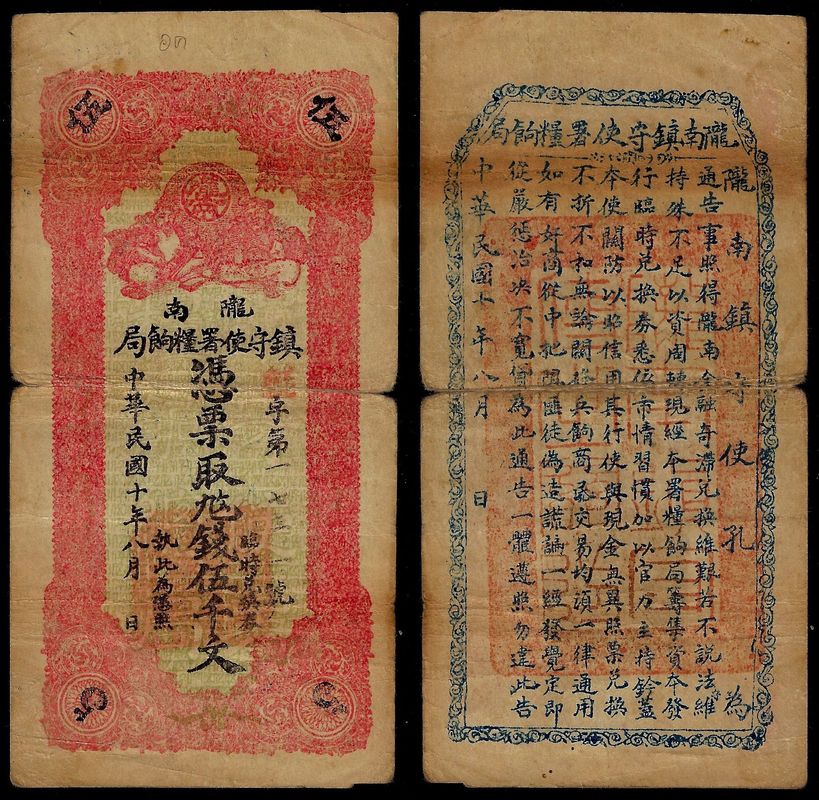 伍
伍
隴南
鎮守使署糧餉局
字第一七
號
憑票取㡷錢伍千文
臨時兌換券
執此為憑照
中華民國十年八月 日
5
5
隴南鎮守使署糧餉局
隴南鎮守使孔 為
通告事照得隴南金融奇滯兌換維艱若不說法維
持殊不足以資周轉現經本署糧餉局籌集資本發
行臨時兌換券悉依市情習慣加以官力主持鈐蓋
本使關防以昭信用其行使與現金無異照票兌換
不折不扣無論關 兵餉商 交易均須一律通用
如有奸商從中把 匪徒偽造謊騙一經發覺定即
從嚴懲治決不寬 為此通告一體遵照勿違此告
中華民國十年八月 日